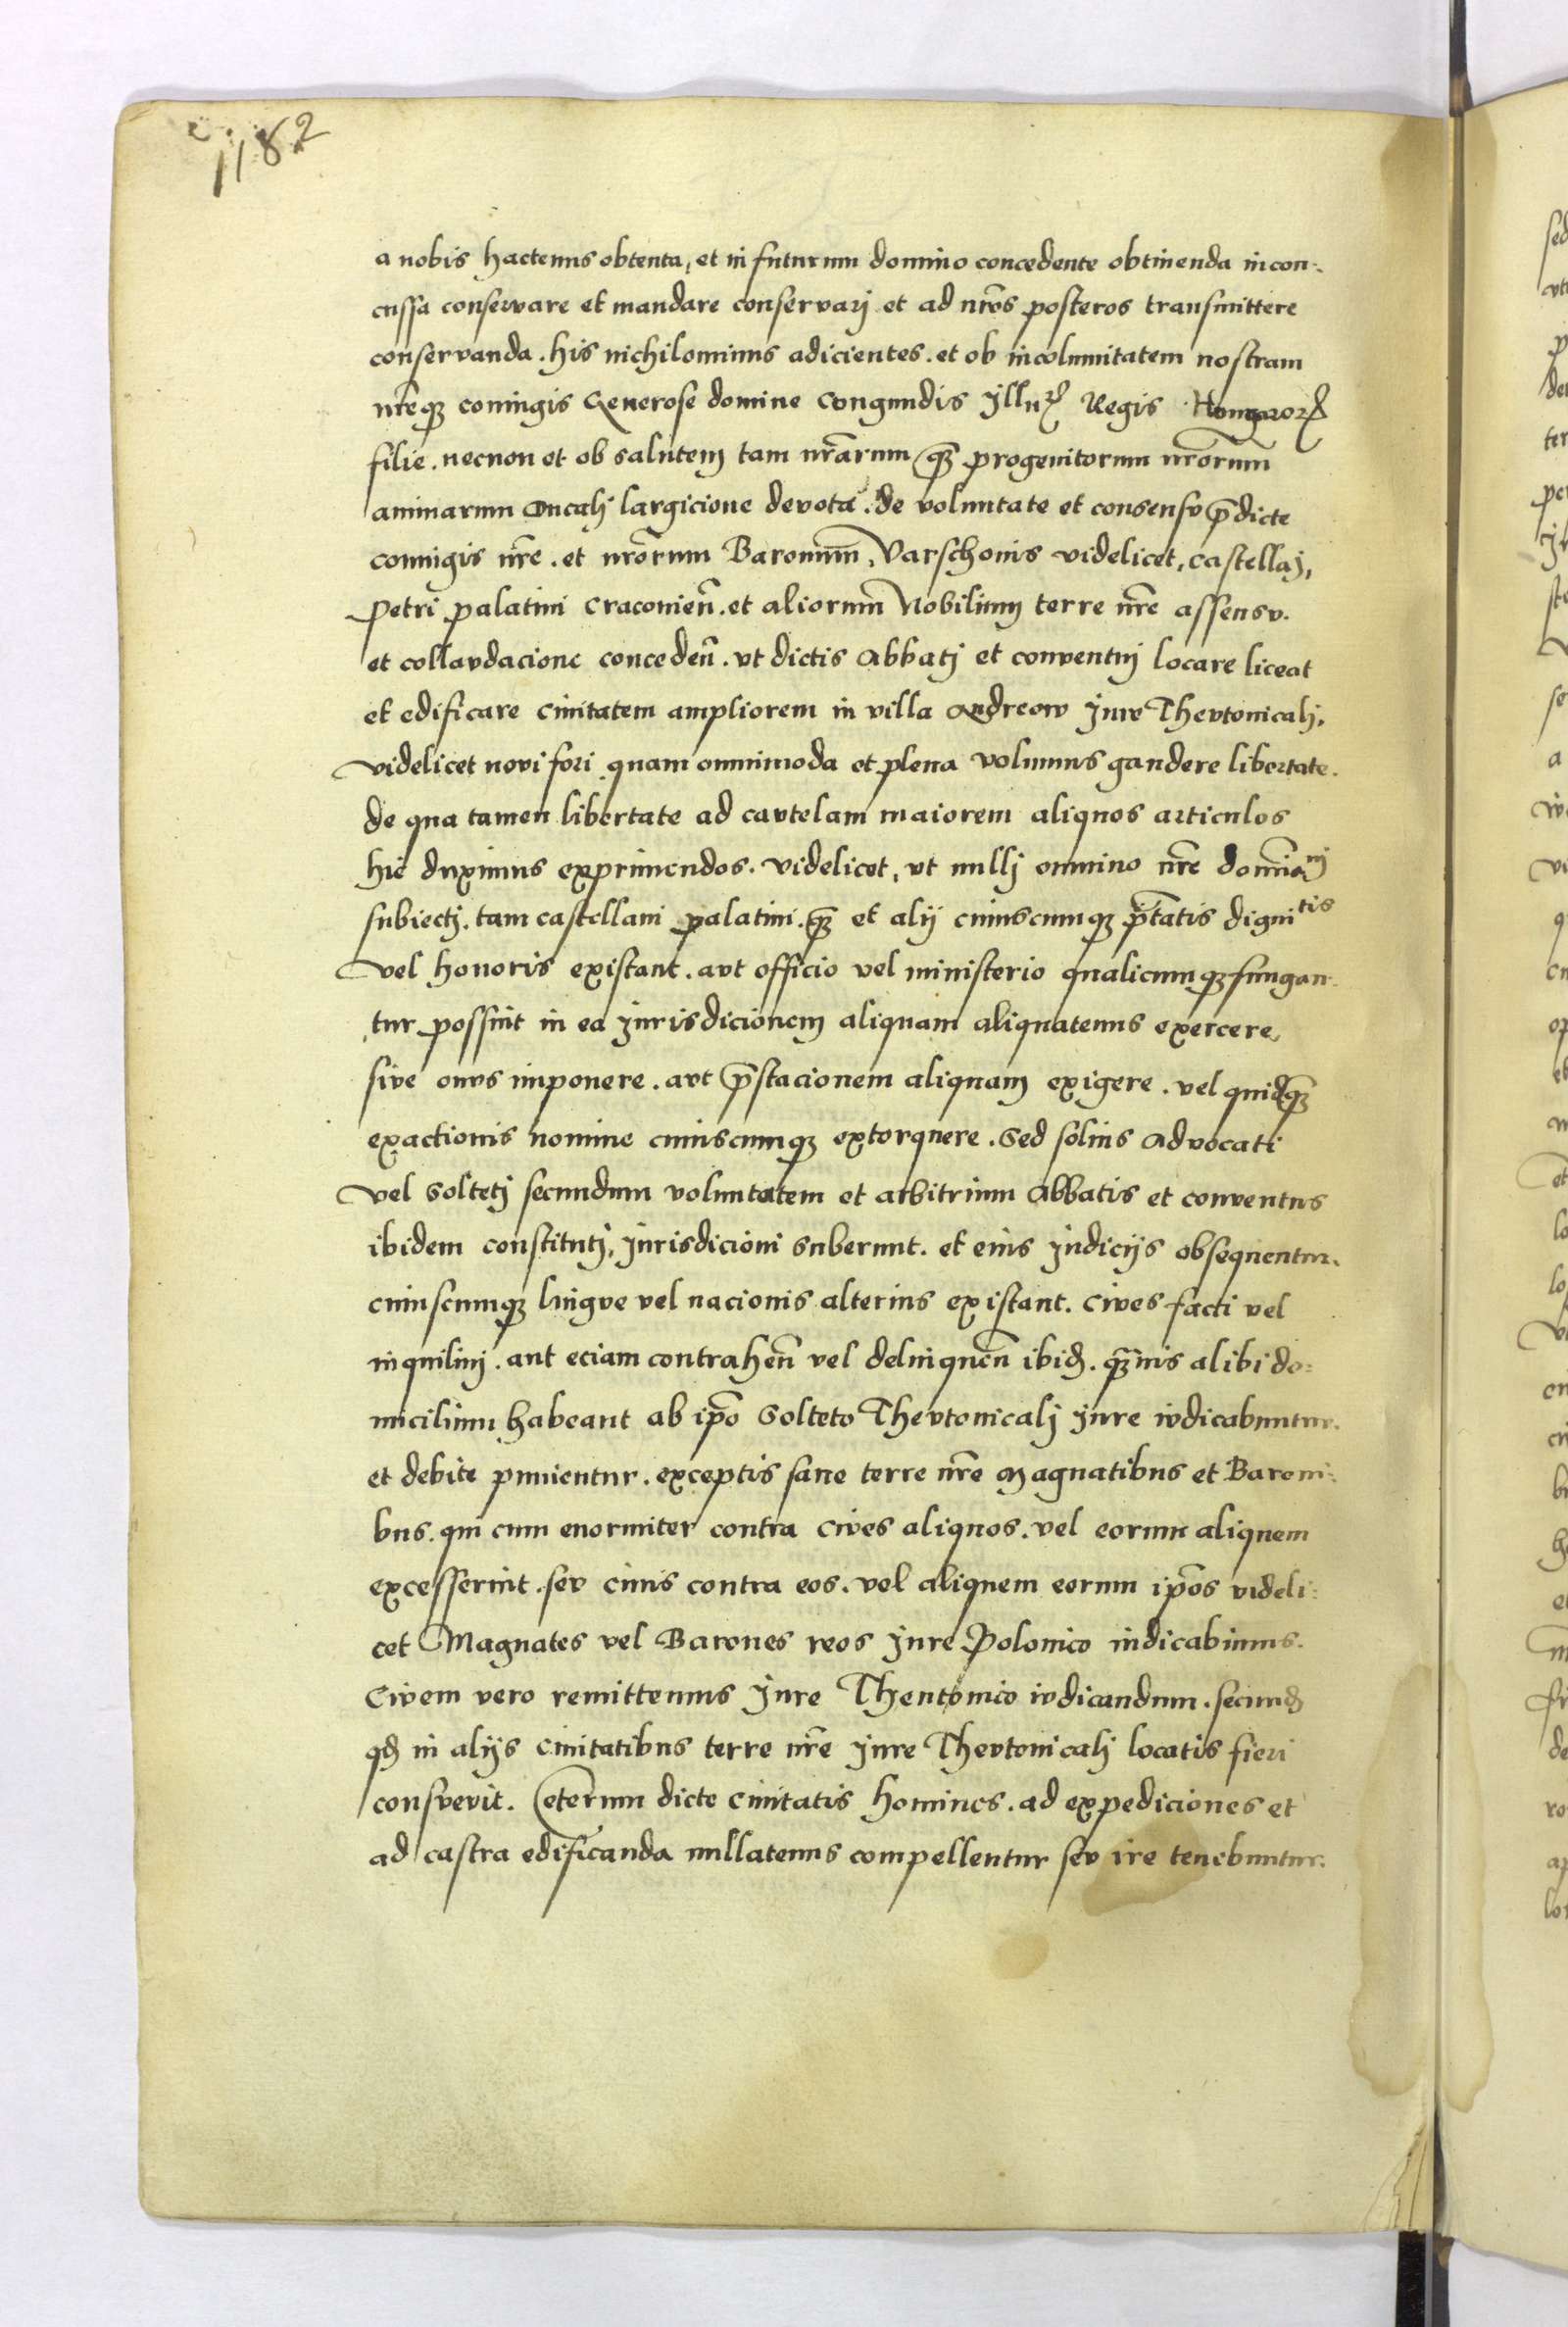 1182
a nobis hactenus obtenta, et in futurum domino concedente obtinenda incon-
cussa conservare et mandare conservarj et ad nr̃os posteros transmittere
conservanda . his nichilominus adicientes . et ob incolumitatem nostram
nr̃eqꝫ coniugis Generose domine Congundis Illuꝝ Regis Hongaroꝝ
filie . necnon et ob salutem tam nr̃arum qꝫ progenitorum nr̃orum
animarum Ducalj largicione devota . de voluntate et consensv p̄dicte
coniugis nr̃e . et nr̃orum Baronum, Varschonis videlicet, castellaj,
Petri palatini Cracovieñ . et aliorum Nobilium terre nr̃e assensv .
et collavdacione concedeñ . vt dictis Abbatj et conventuj locare liceat
et edificare civitatem ampliorem in villa Andreow Jure Thevtonicalj,
videlicet novi fori quam omnimoda et plena volumus gaudere libertate .
de qua tamen libertate ad cavtelam maiorem aliquos articulos
hic duximus exprimendos . videlicet, vt nullj omnino nr̃e dom̃iаnj
subiectj . tam castellani palatini . qꝫ et alij cuiuscumqꝫ p̃tatis dignitis
vel honoris existant . avt officio vel ministerio qualicumqꝫ fungan-
tur possint in ea Jurisdicionem aliquam aliquatenus exercere,
sive onvs imponere . avt p̄stacionem aliquam exigere . vel quidqꝫ
exactionis nomine cuiuscumqꝫ extorquere . Sed solius Advocati
vel Soltetj secundum voluntatem et arbitrium Abbatis et conventus
ibidem constitutj, Jurisdicioni suberunt . et eius Judicijs obsequentur .
cuiuscumqꝫ lingve vel nacionis alterius existant . Cives facti vel
inquilinj . aut eciam contraheñ vel delinqueñ ibiđ . qꝫvis alibi do-
micilium habeant ab ip̃o Solteto Thevtonicalj Jure ivdicabuntur .
et debite punientur . exceptis sane terre nr̃e Magnatibus et Baroni-
bus . qui cum enormiter contra cives aliquos . vel eorum aliquem
excesserint . sev civis contra eos . vel aliquem eorum ip̃os videli-
cet Magnates vel Barones reos Jure Polonico iudicabimus .
Civem vero remittemus Jure Thentonico ivdicandum . secunđ
qđ in alijs civitatibus terre nr̃e Jure Thevtonicalj locatis fieri
consvevit . Ceterum dicte civitatis homines . ad expediciones et
ad castra edificanda nullatenus compellentur sev ire tenebuntur .